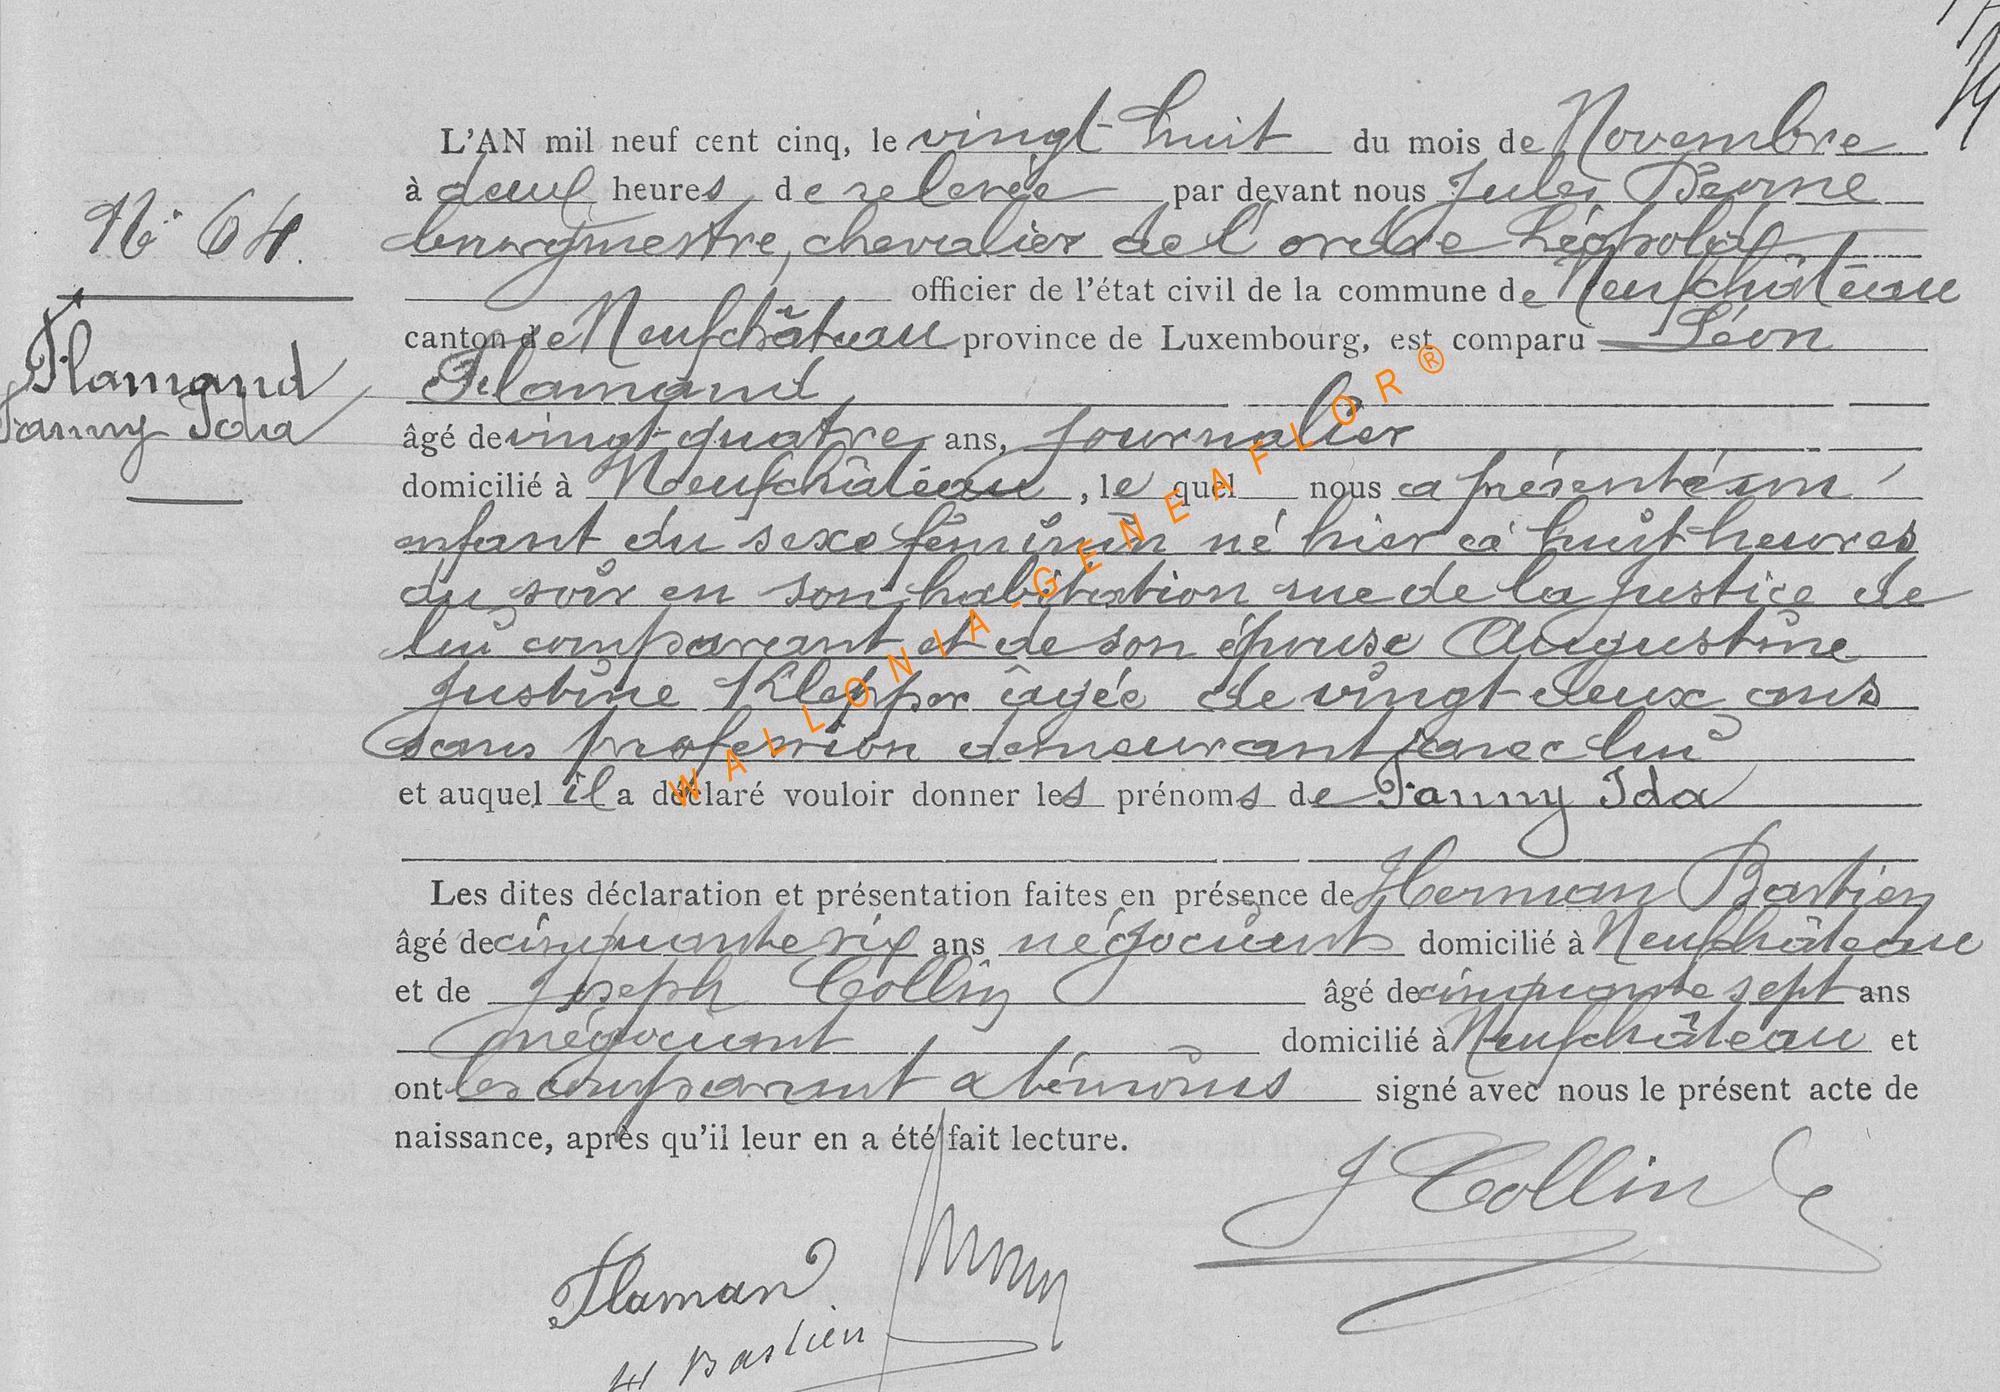 Nº 64.
Flamand
Fanny Ida
L'AN mil neuf cent cinq, le vingt-huit du mois de Novembre
à deux heures de relevée par devant nous Jules
bourgmestre, chevalier de l'ordre Léopold
officier de l'état civil de la commune de Neufchâteau
canton de Neufchâteau province de Luxembourg, est comparu Léon
Flamand,
âgé de vingt-quatre ans, journalier
domicilié à Neufchâteau, le quel nous a présenté un
enfant du sexe féminin né hier à huit heures
du soir en son habitation rue de la Justice de
lui comparant et de son épouse Augustine
Justine Klepper âgée de vingt-deux ans
sans profession demeurant avec lui
et auquel il a déclaré vouloir donner les prénoms de Fanny Ida
Les dites déclaration et présentation faites en présence de Herman Bastien
âgé de cinquante six ans négociant domicilié à Neufchâteau
et de Joseph Collin âgé de cinquante sept ans
négociant domicilié à Neufchâteau et
ont les comparant & témoins signé avec nous le présent acte de
naissance, après qu'il leur en a été fait lecture.
J Collin
Flamand
H Bastien
WALLONIA-GENEAFLOR®